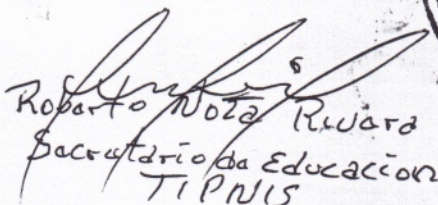 Roberto Nota Rivara
Secretario de Educacion
TIPNIS